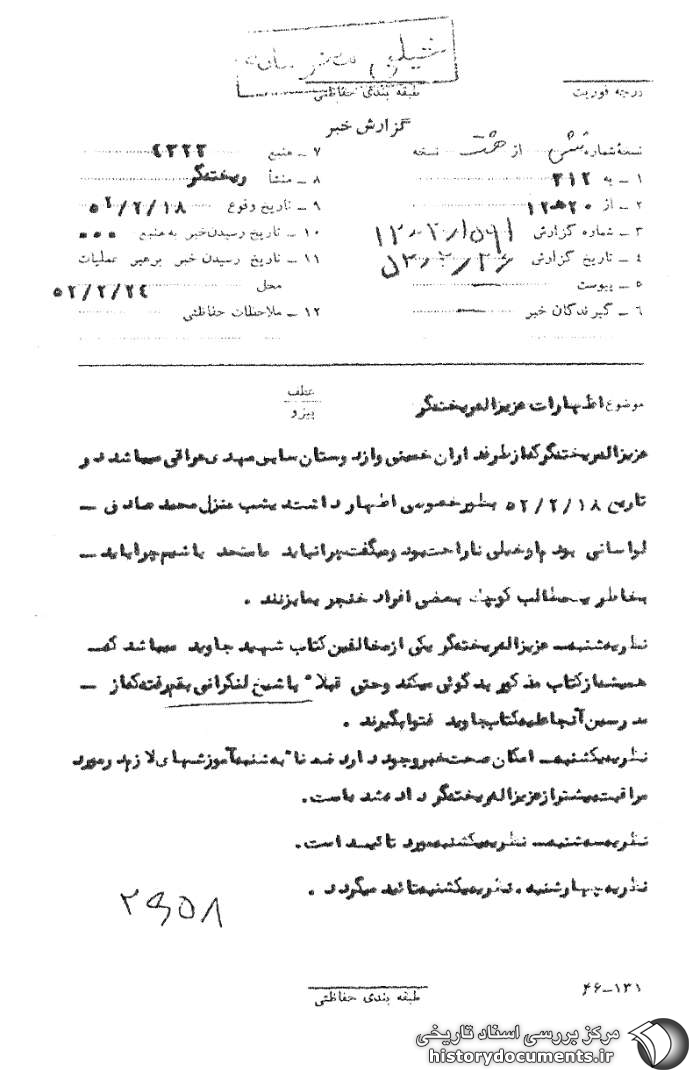 خیلی محرمانه
طبقه بندی حفاظتی
درجه فوریت
گزارش خبر
نسخهٔ شماره شش از هشت نسخه
۱ ـ به ۳۱۲
۲ ـ از ۱۲ﻫ۲۰
۳ ـ شماره گزارش
۴ ـ تاریخ گزارش
۵ ـ پیوست ــ
۶ ـ گیرندگان خبر ــ
۷ ـ منبع ۴۳۲۳
۸ ـ منشأ ریخته‌گر
۹ ـ تاریخ وقوع ۵۲/۲/۱۸
۱۰ ـ تاریخ رسیدن خبر به منبع ۰۰۰
۱۱ ـ تاریخ رسیدن خبر برهبر عملیات
محل ۵۲/۲/۲۴
۱۲ ـ ملاحظات حفاظتی
موضوع اظهارات عزیزاله ریخته‌گر
عطف
پیرو
عزیزاله ریخته‌گر که از طرفداران خمینی و از دوستان سابق مهدی عراقی میباشد در
تاریخ ۵۲/۲/۱۸ بطور خصوصی اظهار داشت دیشب منزل محمد صادق ـ
لواسانی بودم او خیلی ناراحت بود و میگفت چرا نباید ما متحد باشیم چرا باید ـ
بخاطر یک مطالب کوچک بعضی افراد خنجر بما بزنند .
نظریه شنبه ـ عزیزاله ریخته‌گر یکی از مخالفین کتاب شهید جاوید میباشد که ـ
همیشه از کتاب مذکور بدگوئی میکند و حتی قبلا" با شیخ لنکرانی بقم رفته که از ـ
مدرسین آنجا علیه کتاب جاوید فتوا بگیرند .
نظریه یکشنبه ـ امکان صحت خبر وجود دارد ضمنا" به شنبه آموزشهای لازم در مورد
مراقبت بیشتر از عزیزاله ریخته‌گر داده شده است .
نظریه سه‌شنبه ـ نظریه یکشنبه مورد تائید است .
نظریه چهارشنبه . نظریه یکشنبه تائید میگردد .
طبقه بندی حفاظتی
۴۶-۱۳۱
مرکز بررسی اسناد تاریخی
historydocuments.ir